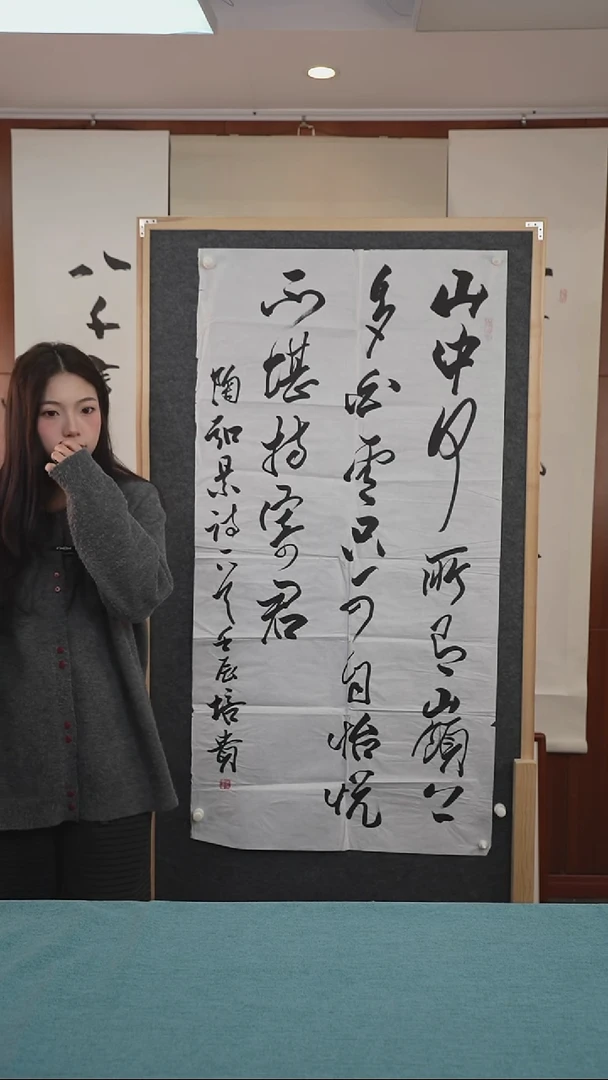 山中何所有嶺上
多白雲只可自怡悦
不堪持寄君
陶弘景詩一首壬辰培貴
八千